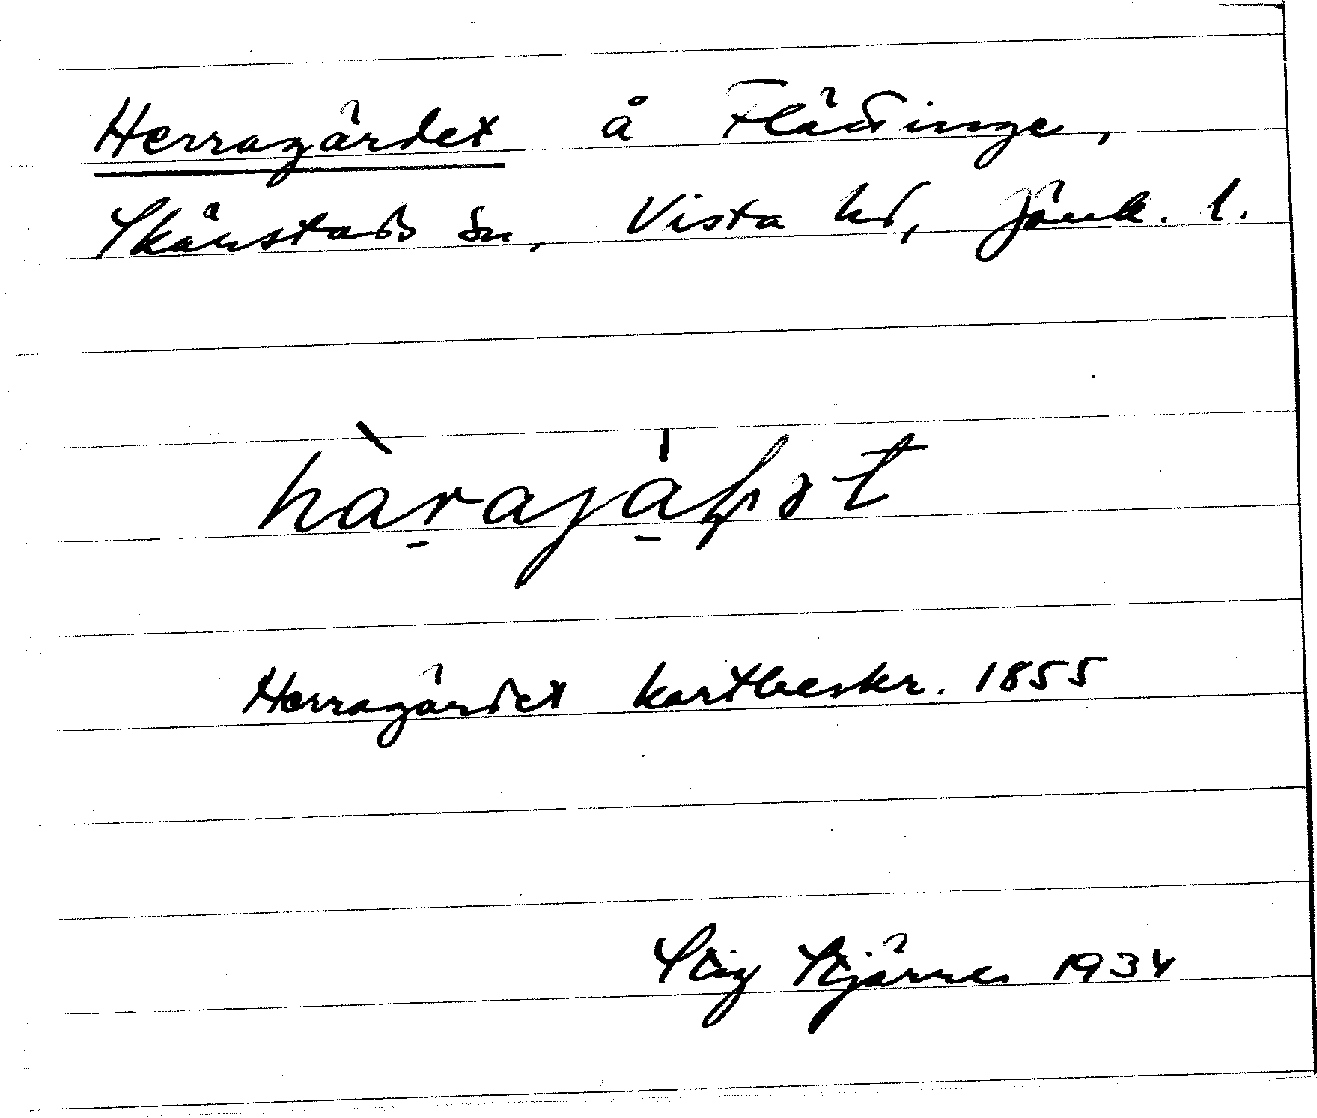 Herragärdet å Flättinge,
Skärstads sn, Vista hd, Jönk. l.
hàrajáḷət
Herragärdet kartbeskr. 1855
Stig Stjärne 1934